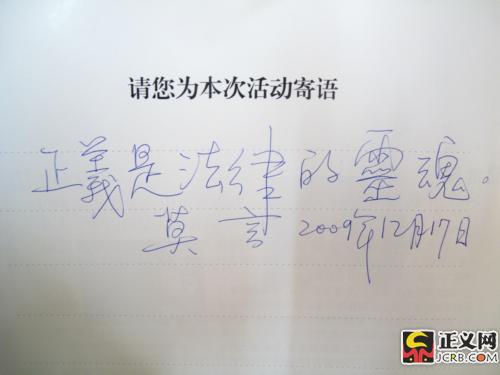 请您为本次活动寄语
正義是法律的靈魂.
莫言 2009年12月17日
正义网
JCRB.COM